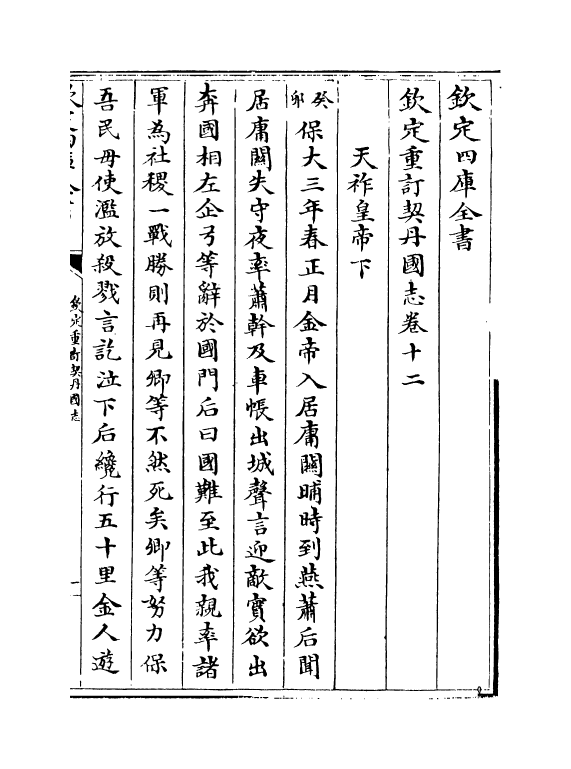 欽定四庫全書
欽定重訂契丹國志卷十二
天祚皇帝下
癸卯保大三年春正月金帝入居庸關晡時到燕蕭后聞
居庸關失守夜率蕭幹及車帳出城聲言迎敵實欲出
奔國相左企弓等辭於國門后曰國難至此我親率諸
軍為社稷一戰勝則再見卿等不然死矣卿等努力保
吾民毋使濫放殺戮言訖泣下后纔行五十里金人遊
欽定重訂契丹國志